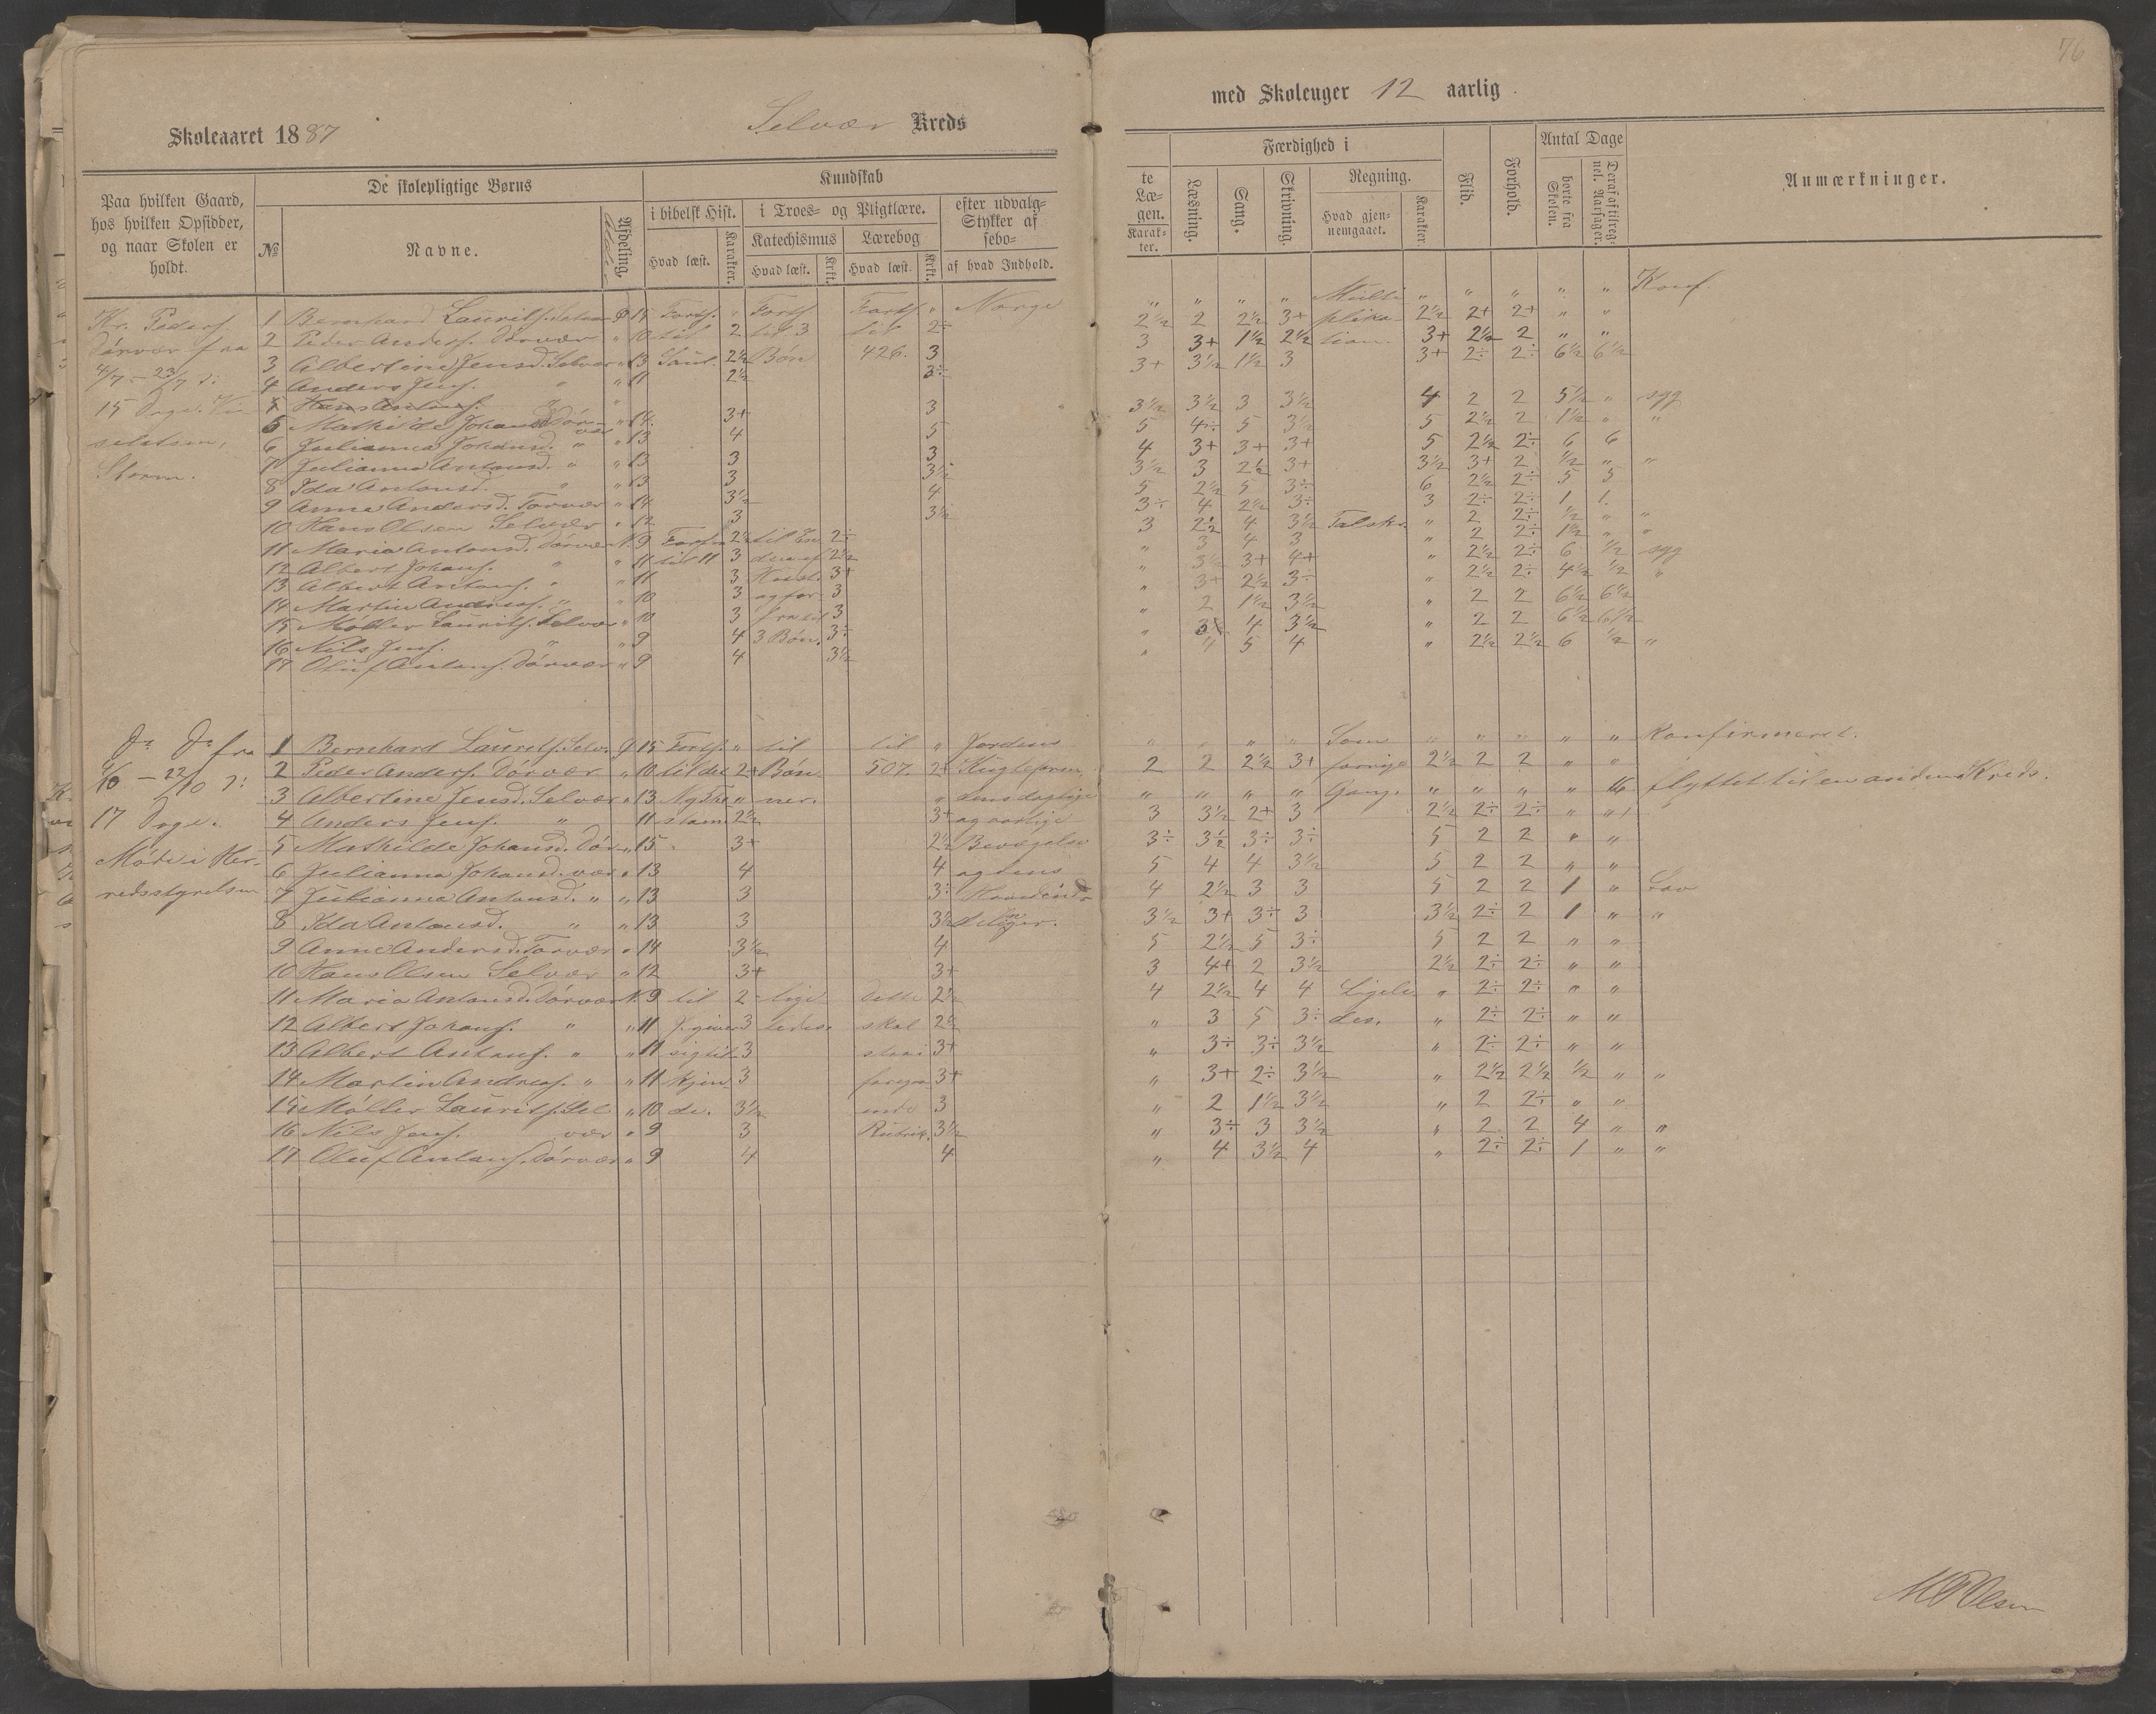 76
Skoleaaret 1887 Selvær Kreds med Skoleuger 12 aarlig.
Paa hvilken Gaard, hos hvilken Opsidder, og naar Skolen er holdt.
De skolepligtige Børns
№ Navne. Afdeling. Alder
Kundskab
i bibelsk Hist. Hvad læst. Karakter.
i Troes- og Pligtlære.
Katechismus Hvad læst. Krkt.
Lærebog Hvad læst. Krkt.
efter udvalg- Stykker af sebo- af hvad Indhold.
te Læ- gen. Karak- ter.
Færdighed i
Læsning. Sang. Skrivning.
Regning. Hvad gjen- nemgaaet. Karakter.
Flid. Forhold.
Antal Dage
borte fra Skolen. Deraf af tilreg- nel. Aarsager.
Anmærkninger.
Kr. Peders.
Dørvær fra
4/7 - 23/7 d:
15 Dage.
Storm.
1 Bernhard Laurits. Selvær Ø 15 Forts. " Forts. Forts. " Norge " " " " Multi " " " " " Konf.
2 Peder Anders. Dørvær " 10 til 2 til 3 til 2÷ 2½ 2 2½ 3+ plika- 2½ 2+ 2+ " "
3 Albertine Jensd. Selvær " 13 2½ Bøn 426. 3 3 3+ 1½ 2½ tion. 3+ 2½ 2 " "
4 Anders Jens. " " 11 2½ 3÷ 3+ 3½ 1½ 3 3+ 2÷ 2÷ 6½ 6½
5 Mathilde Johansd. Dørvær " 14 3+ 3 3½ 3½ 3 3½ 4 2 2 5½ " syg
6 Julianna Johansd. " " 13 4 5 5 4÷ 5 3½ 5 2½ 2 1½ " "
7 Julianna Antonsd. " " 13 3 3 4 3+ 3+ 3+ 5 2½ 2÷ 6 6
8 Ida Antonsd. " " 13 3 3½ 3½ 3 2½ 3+ 3½ 3+ 2 ½ " "
9 Anna Andersd. Torvær " 14 3½ 4 5 2½ 5 3÷ 6 2½ 2÷ 5 5
10 Hans Olsen Selvær " 12 3 3½ 3÷ 4 2½ 3÷ 3 2÷ 2÷ 1 1
11 Maria Antonsd. Dørvær N. 9 2½ 2÷ 3 2½ 4 3½ " 2 2÷ ½ " "
12 Albert Johans. " " 11 til 11 3 2½ " 3 4 3 " 2 2÷ 1½ " "
13 Albert Antons. " " 11 3 3+ " 3½ 3+ 4+ " 2½ 2÷ 6 ½ syg
14 Martin Andreas. " " 10 3 og for- 3 " 3+ 2½ 3÷ " 2½ 2÷ 4½ ½ "
15 Møller Laurits. Selvær " 10 3 3 " 2 1½ 3½ " 2 2 6½ 6½
16 Nils Jens. " " 9 4 3 Bøn. 3÷ " 3½ 4 3½ " 2 2 6½ 6½
17 Oluf Antons. Dørvær " 9 4 3½ " 4 5 4 " 2½ 2½ 6 ½ "
Do Do fra
- 22/10 d:
17 Dage.
Møde i Her-
redsstyrelsen
1 Bernhard Laurits. Selv. Ø 15 Forts. " til til " Jordens " " " " Som " " " " " Konfirmeret.
2 Peder Anders. Dørvær " 10 til det 2+ Bøn- 507. 2+ Kugleform, 2 2 2½ 3+ forrige 2½ 2 2 " "
3 Albertine Jensd. Selvær " 13 Ny Te " ner. " dens daglige " " " " Gang. " " " " 16 flyttet til en anden Kreds.
4 Anders Jens. " " 11 stam. 2½ 3+ og aarlige 3 3½ 2+ 3 2½ 2÷ 2÷ " "
5 Mathilde Johansd. Dør- " 15 3+ 2½ Bevægelse 3÷ 3½ 3÷ 3÷ 5 2 2 " "
6 Julianna Johansd. vær " 13 4 4 og dens 5 4 4 3½ 5 2 2 " "
7 Julianna Antonsd. " " 13 3 3÷ Hovedind- 4 2½ 3 3 5 2 2 1 "
8 Ida Antonsd. " " 13 3 3½ delinger. 3½ 3+ 3÷ 3 3½ 2÷ 2 1 " "
9 Anna Andersd. Torvær " 14 3½ 4 5 2½ 5 3÷ 5 2 2 " "
10 Hans Olsen Selvær " 12 3+ 3+ 3 4+ 2 3½ 2½ 2÷ 2÷ " "
11 Maria Antonsd. Dørvær N. 9 til 2 lige- Dette 2½ 4 2½ 4 4 Ligele- " 2÷ 2÷ " "
12 Albert Johans. " " 11 J. giver 3 ledes. skal 2½ " 3 5 3÷ des. " 2÷ 2÷ " "
13 Albert Antons. " " 11 sig til 3 staa i 3+ " 3÷ 3÷ 3½ " 2÷ 2÷ " "
14 Martin Andreas. " " 11 kjen- 3 foregaa- 3+ " 3+ 2÷ 3½ " 2½ 2½ ½ " "
15 Møller Laurits. Sel- " 10 de. 3½ ende 3 " 2 1½ 3½ " 2 2÷ " "
16 Nils Jens. vær " 9 3 Rubrik. 3½ " 3÷ 3 3½ " 2 2 4 " "
17 Oluf Antons. Dørvær " 9 4 4 " 4 3½ 4 " 2÷ 2÷ 1 " "